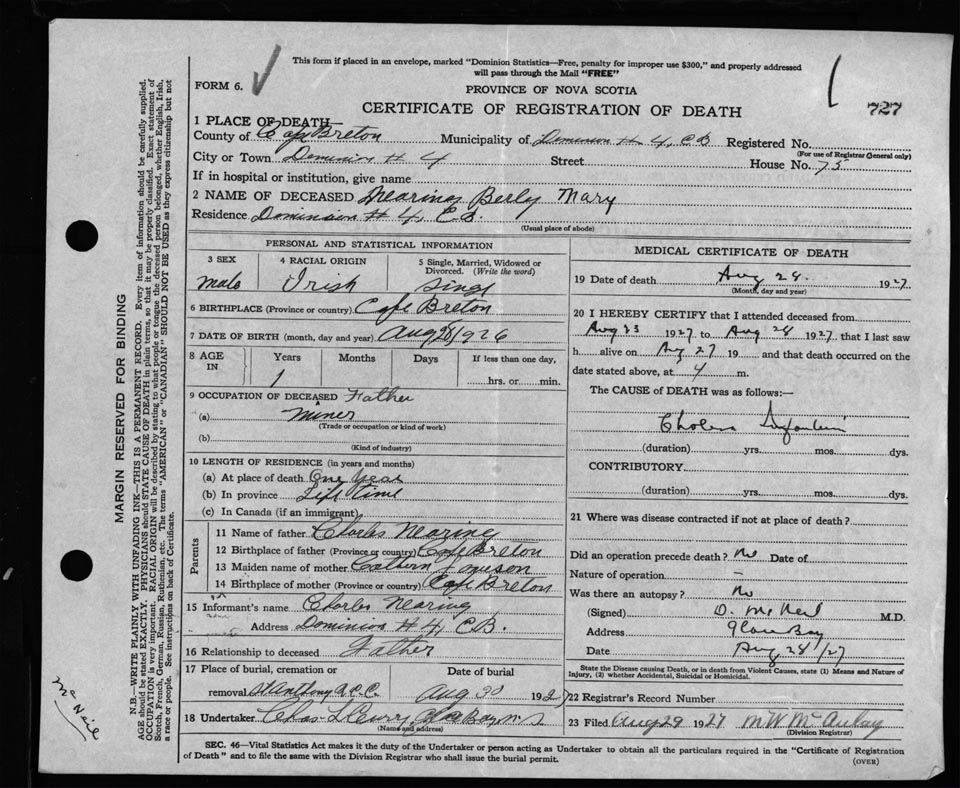 This form if placed in an envelope, marked "Dominion Statistics—Free, penalty for improper use $300," and properly addressed
will pass through the Mail "FREE"
FORM 6.
PROVINCE OF NOVA SCOTIA
727
CERTIFICATE OF REGISTRATION OF DEATH
1 PLACE OF DEATH—
County of Cape Breton Municipality of Dominion # 4, CB Registered No.
(For use of Registrar General only)
City or Town Dominion # 4 Street House No. 75
If in hospital or institution, give name
2 NAME OF DECEASED Nearing Mary
Residence Dominion # 4, C.B.
(Usual place of abode)
PERSONAL AND STATISTICAL INFORMATION
3 SEX 4 RACIAL ORIGIN 5 Single, Married, Widowed or Divorced. (Write the word)
male Irish Singl
6 BIRTHPLACE (Province or country) Cape Breton
7 DATE OF BIRTH (month, day and year) Aug 28/1926
8 AGE IN Years Months Days If less than one day,
1 hrs. or min.
9 OCCUPATION OF DECEASED Father
(a) miner
(Trade or occupation or kind of work)
(b)
(Kind of industry)
10 LENGTH OF RESIDENCE (in years and months)
(a) At place of death One Year
(b) In province Life Time
(c) In Canada (if an immigrant)
Parents
11 Name of father Charles Nearing
12 Birthplace of father (Province or country) Cape Breton
13 Maiden name of mother Cathern
14 Birthplace of mother (Province or country) Cape Breton
15 Informant's name Charles Nearing
Address Dominion # 4, C.B.
16 Relationship to deceased Father
17 Place of burial, cremation or Date of burial
removal St Anthony R.C.C. Aug 30 1927
18 Undertaker Chas Glace Bay N S
(Name and address)
MEDICAL CERTIFICATE OF DEATH
19 Date of death Aug 28. 1927
(Month, day and year)
20 I HEREBY CERTIFY that I attended deceased from
Aug 23 1927 to Aug 28 1927, that I last saw
h alive on Aug 27 19 and that death occurred on the
date stated above, at 4 m.
The CAUSE of DEATH was as follows:—
Cholera Infantum
(duration) yrs. mos. dys.
CONTRIBUTORY.
(duration) yrs. mos. dys.
21 Where was disease contracted if not at place of death?
Did an operation precede death? No Date of
Nature of operation —
Was there an autopsy? No
(Signed) D. McNeil M.D.
Address Glace Bay
Date Aug 28/27
State the Disease causing Death, or in death from Violent Causes, state (1) Means and Nature of
Injury, (2) whether Accidental, Suicidal or Homicidal.
22 Registrar's Record Number
23 Filed Aug 29 1927 M W McAulay
(Division Registrar)
SEC. 46—Vital Statistics Act makes it the duty of the Undertaker or person acting as Undertaker to obtain all the particulars required in the "Certificate of Registration
of Death" and to file the same with the Division Registrar who shall issue the burial permit.
(OVER)
MARGIN RESERVED FOR BINDING
N.B.—WRITE PLAINLY WITH UNFADING INK—THIS IS A PERMANENT RECORD. Every item of information should be carefully supplied.
AGE should be stated EXACTLY. PHYSICIANS should STATE CAUSE OF DEATH in plain terms, so that it may be properly classified. Exact statement of
OCCUPATION is very important. RACIAL ORIGIN will be described by stating to what people or tongue the deceased person belonged, whether English, Irish,
Scotch, French, German, Russian, Ruthenian, etc. The terms "AMERICAN" or "CANADIAN" SHOULD NOT BE USED as they express citizenship but not
a race or people. See instructions on back of Certificate.
McNeil